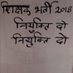 शिक्षक भर्ती 2018
नियुक्ति दो
नियुक्ति दो